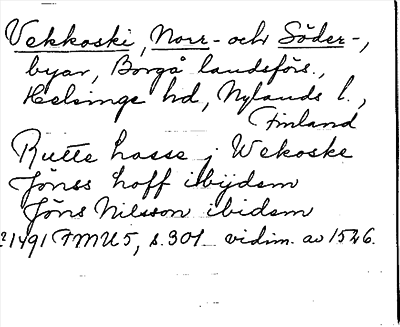 Vekkoski, Norr- och Söder-,
byar, Borgå landsförs.,
Helsinge hd, Nylands l.,
Finland
Rutte Lasse j Wekoske
Jönss hoff ibijdem
Jöns Nilsson ibidem
?1491 FMU 5, s. 301 vidim. av 1526.